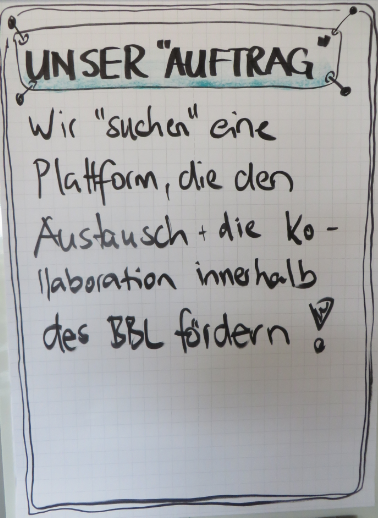 UNSER "AUFTRAG"
Wir "suchen" eine
Plattform, die den
Austausch + die Ko-
llaboration innerhalb
des BBL fördern !